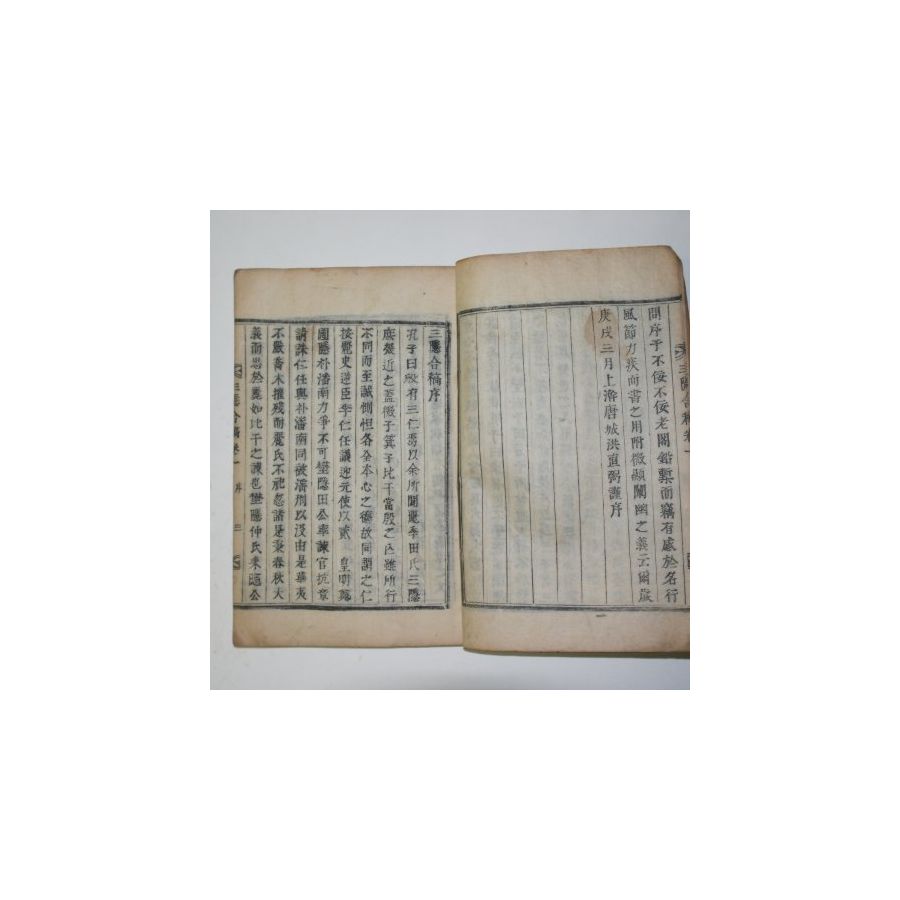 三隱合稿卷一
問序于不佞不佞老閣鉛槧而竊有感於名行
風節力疾而書之用附微顯闡幽之義云爾歲
庚戌二月上澣唐城洪直弼謹序
三隱合稿序
孔子曰殷有三仁焉以余所聞麗季田氏三隱
庶幾近之蓋微子箕子比干當殷之亡雖所行
不同而至誠惻怛各全本心之德故同謂之仁
按麗史逆臣李仁任議迎元使以貳 皇明
國隱朴潘南力爭不可壄隱田公率諫官抗章
請誅仁任與朴潘南同被潘刑以沒由是華夷
不嚴喬木摧殘而麗氏不祀忽諸是秉春秋大
義而忠於冀如比干之諫也壄隱仲氏耒隱公
三隱合稿卷一 序 三